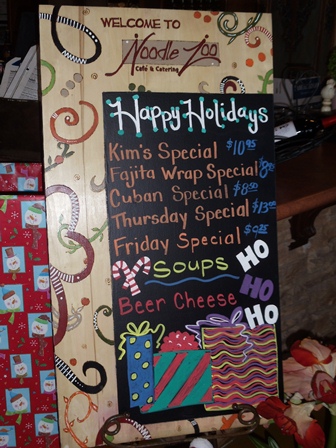 WELCOME TO
Noodle Zoo
Café & Catering
Happy Holidays
Kim's Special $10.95
Fajita Wrap Special
Cuban Special $8.50
Thursday Special $13.00
Friday Special
SOUPS
HO
Beer Cheese HO
HO